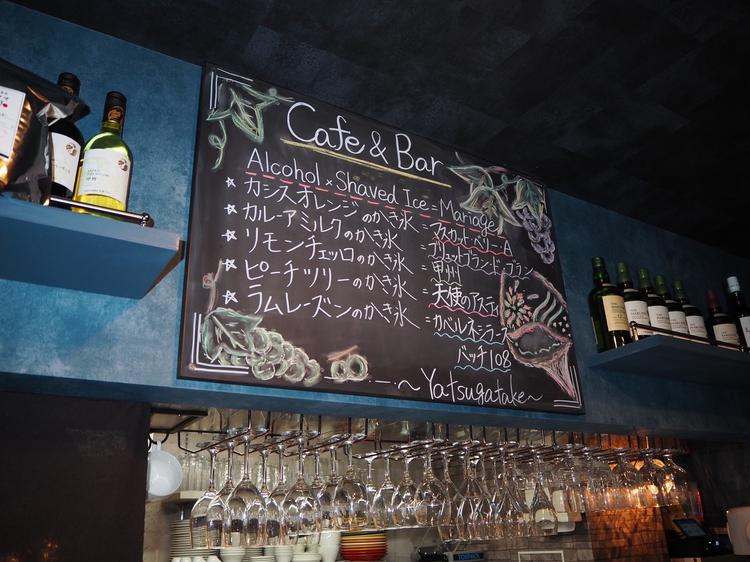 Cafe & Bar
Alcohol × Shaved Ice = Mariage
☆ カシスオレンジのかき氷 = マスカット・ベリーA
☆ カルーアミルクのかき氷 = ブリュットブランドゥブラン
☆ リモンチェッロのかき氷 = 甲州
☆ ピーチツリーのかき氷 = 天使のアスティ
☆ ラムレーズンのかき氷 = カベルネシラーズ
バッチ108
~Yatsugatake~